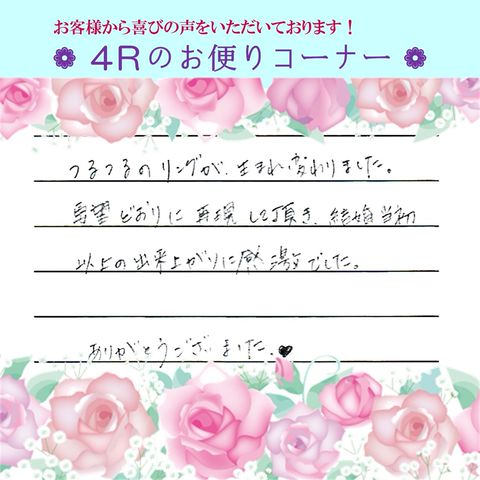 お客様から喜びの声をいただいております!
4Rのお便りコーナー
つるつるのリングが、生まれ変わりました。
希望どおりに再現して頂き、結婚当初
以上の出来上がりに感激でした。
ありがとうございました。♥